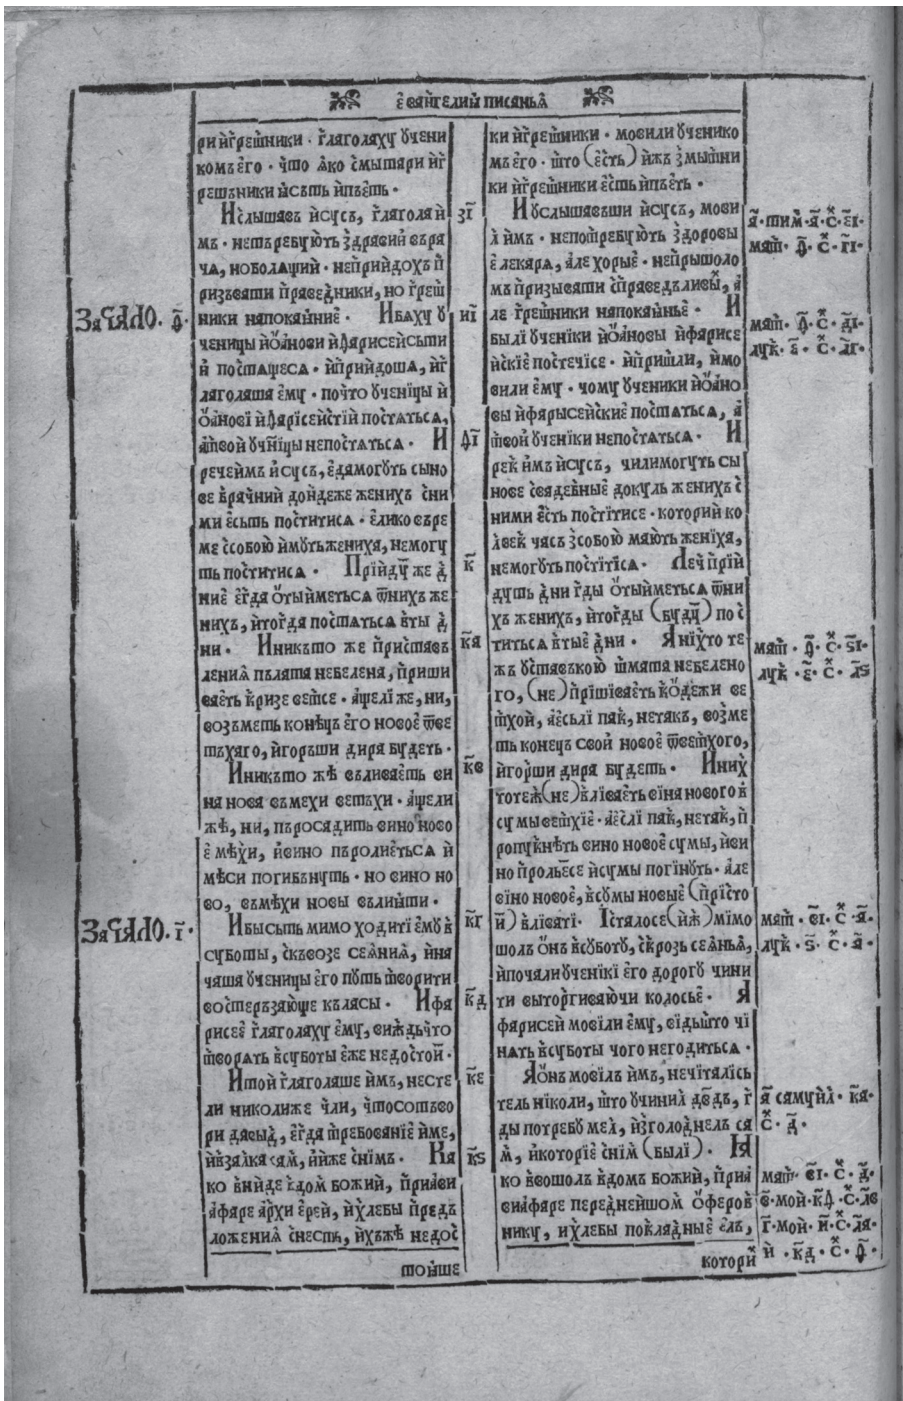 є҆ваⷩ҇гелиѝ писаньѧ
ри и҆грешники · глаголяху ѹчени
комъ его · что яко смытари и҆гр
решъники ꙗсть и҆пъеть ·
И҆слышавъ и҆сусъ, глаголя и҆
мъ · нетъребують здравии въря
ча, но болящии · неприйдохъ п
ризъвати праведники, но греш
ники напокание · И҆бяху ѹ
ченицы и҆оанови и҆фарисейсьти
и постащеся · и҆прийдоша, и҆г
лаголаша ему · почто ѹченицы и҆
оанові и҆фарісейстій постяться,
а твой ѹчницы непостяться · И
рече имъ и҆сусъ, е҆дамогуть сыно
ве врачний дондеже женихъ сни
ми есьть поститися · елико въре
ме ссобою имуть жениха, немогу
ть поститися · Прійдуть же д
ние егда отыйметься ѿнихъ же
нихъ, и҆тогда постяться вты д
ни · Иникъто же приставъ
ления пълата небелена, приши
ваеть кризе ветсе · ащелі же, ни,
возъметь конецъ его новое ѿве
тъхаго, и҆горъши дира будеть ·
Иникъто же въливаеть ви
на нова въмехи ветъхи · ащели
же, ни, пъросадить вино ново
е мѣхи, и҆вино пъролиеться и҆
мѣси погибънуть · но вино но
во, въмѣхи новы влияти ·
И҆бысть мимо ходити ему в
суботы, сквозе сеания, и҆на
чаша ѹченицы его путь творити
востеръзающе кълясы · И҆фа
рисеє глаголяху ему, вижьдьчто
творать всуботы еже недостои ·
И҆той глаголаше имъ, несте
ли николиже чли, чтосотъво
ри давыд, егда требование име,
и҆взалка сам, и҆иже снімъ · Ка
ко вниде вдом божий, прияви
афаре архиерей, и҆хлебы предъ
ложения снесть, и҆хъже недос
тоинше
ки и҆грешники · мовили ѹченико
мъ его · што (есть) ижъ змытни
ки и҆грешники есть и҆пьеть ·
И ѹслышавъши и҆сусъ, мови
л имъ · непотребують здоровы
е лекаря, але хорые · непрышоло
мъ призывати справедъливы, а
ле грешники напокаянье · И
были ѹченіки и҆оановы и҆фарисе
йскіе постечісе · и҆пришли, и҆мо
вили ему · чому ѹченики и҆оано
вы и҆фарысейские постяться, а
твой ѹченики непостяться · И
рек имъ и҆сусъ, чилимогуть сы
нове свадебные докуль женихъ с
ними есть постітисе · который ко
лвек часъ зсобою мають женіха,
немогуть постітіся · Леч прій
дуть дни гды отыйметься ѿни
хъ женихъ, и҆тогды (будут) пос
титься втые дни · А ніхто те
жъ ѹставъкою тмата небелено
го, (не) прішіваеть кодежи ве
тхой, аесьли пак, нетакъ, возме
ть конець свой новое ѿветхого,
и҆горши дира будеть · И них
тотеж (не) влівяеть віна нового в
сумы ветхіе · аеслі пак, нетак, п
ропукнеть вино новое сумы, и҆ви
но прольесе и҆сумы погінуть · але
віно новое, всумы новые (прісто
й) влівяті · Істалосе (иж) мімо
шолъ онъ всуботу, скрозь сеанья,
и҆почали ѹченікі его дорогу чини
ти выторгиваючи колосье · А
фарисей мовіли ему, відьшто чі
нать всуботы чого негодиться ·
А онъ мовілъ имъ, нечіталісь
тель ніколи, што ѹчинил двдъ, г
ды потребу мел, и҆зголоднелъ са
м, и҆которіе снім (былі) · Я
ко вошолъ вдомъ божий, прия
виафаре переднейшом оферов
нику, и҆хлебы покладные елъ,
который
Зачало · ѳ ·
Зачало · і ·
зі
иі
ѳі
к
ка
кв
кг
кд
ке
кѕ
а · тим · а · с · еі ·
мат · ѳ · с · гі ·
мат · ѳ · с · ді ·
лук · е · с · лг ·
мат · ѳ · с · ѕі ·
лук · е · с · лѕ
мат · ві · с · а ·
лук · ѕ · с · а ·
а самуил · ка ·
с · д ·
мат · ві · с · д ·
в · мой · кѳ · с · лв
г · мой · и · с · ла ·
и · кд · с · ѳ ·